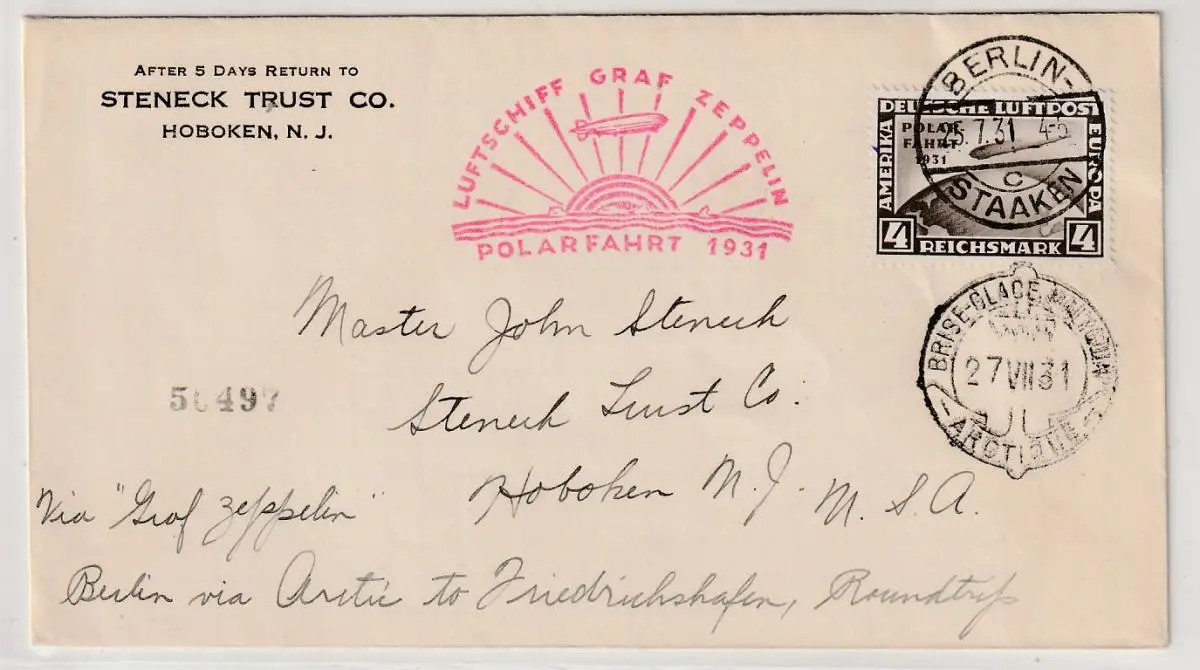 AFTER 5 DAYS RETURN TO
STENECK TRUST CO.
HOBOKEN, N. J.
LUFTSCHIFF GRAF ZEPPELIN
POLARFAHRT 1931
BERLIN-
25.7.31 4-5
C
STAAKEN
DEUTSCHE LUFTPOST
AMERIKA
EUROPA
POLAR-
FAHRT
1931
4 REICHSMARK 4
BRISE-GLACE
27 VII 31
ARCTIQUE
Master John Steneck
50497
Steneck Trust Co.
Hoboken N. J. U. S. A.
Via "Graf Zeppelin"
Berlin via Arctic to Friedrichshafen, Roundtrip